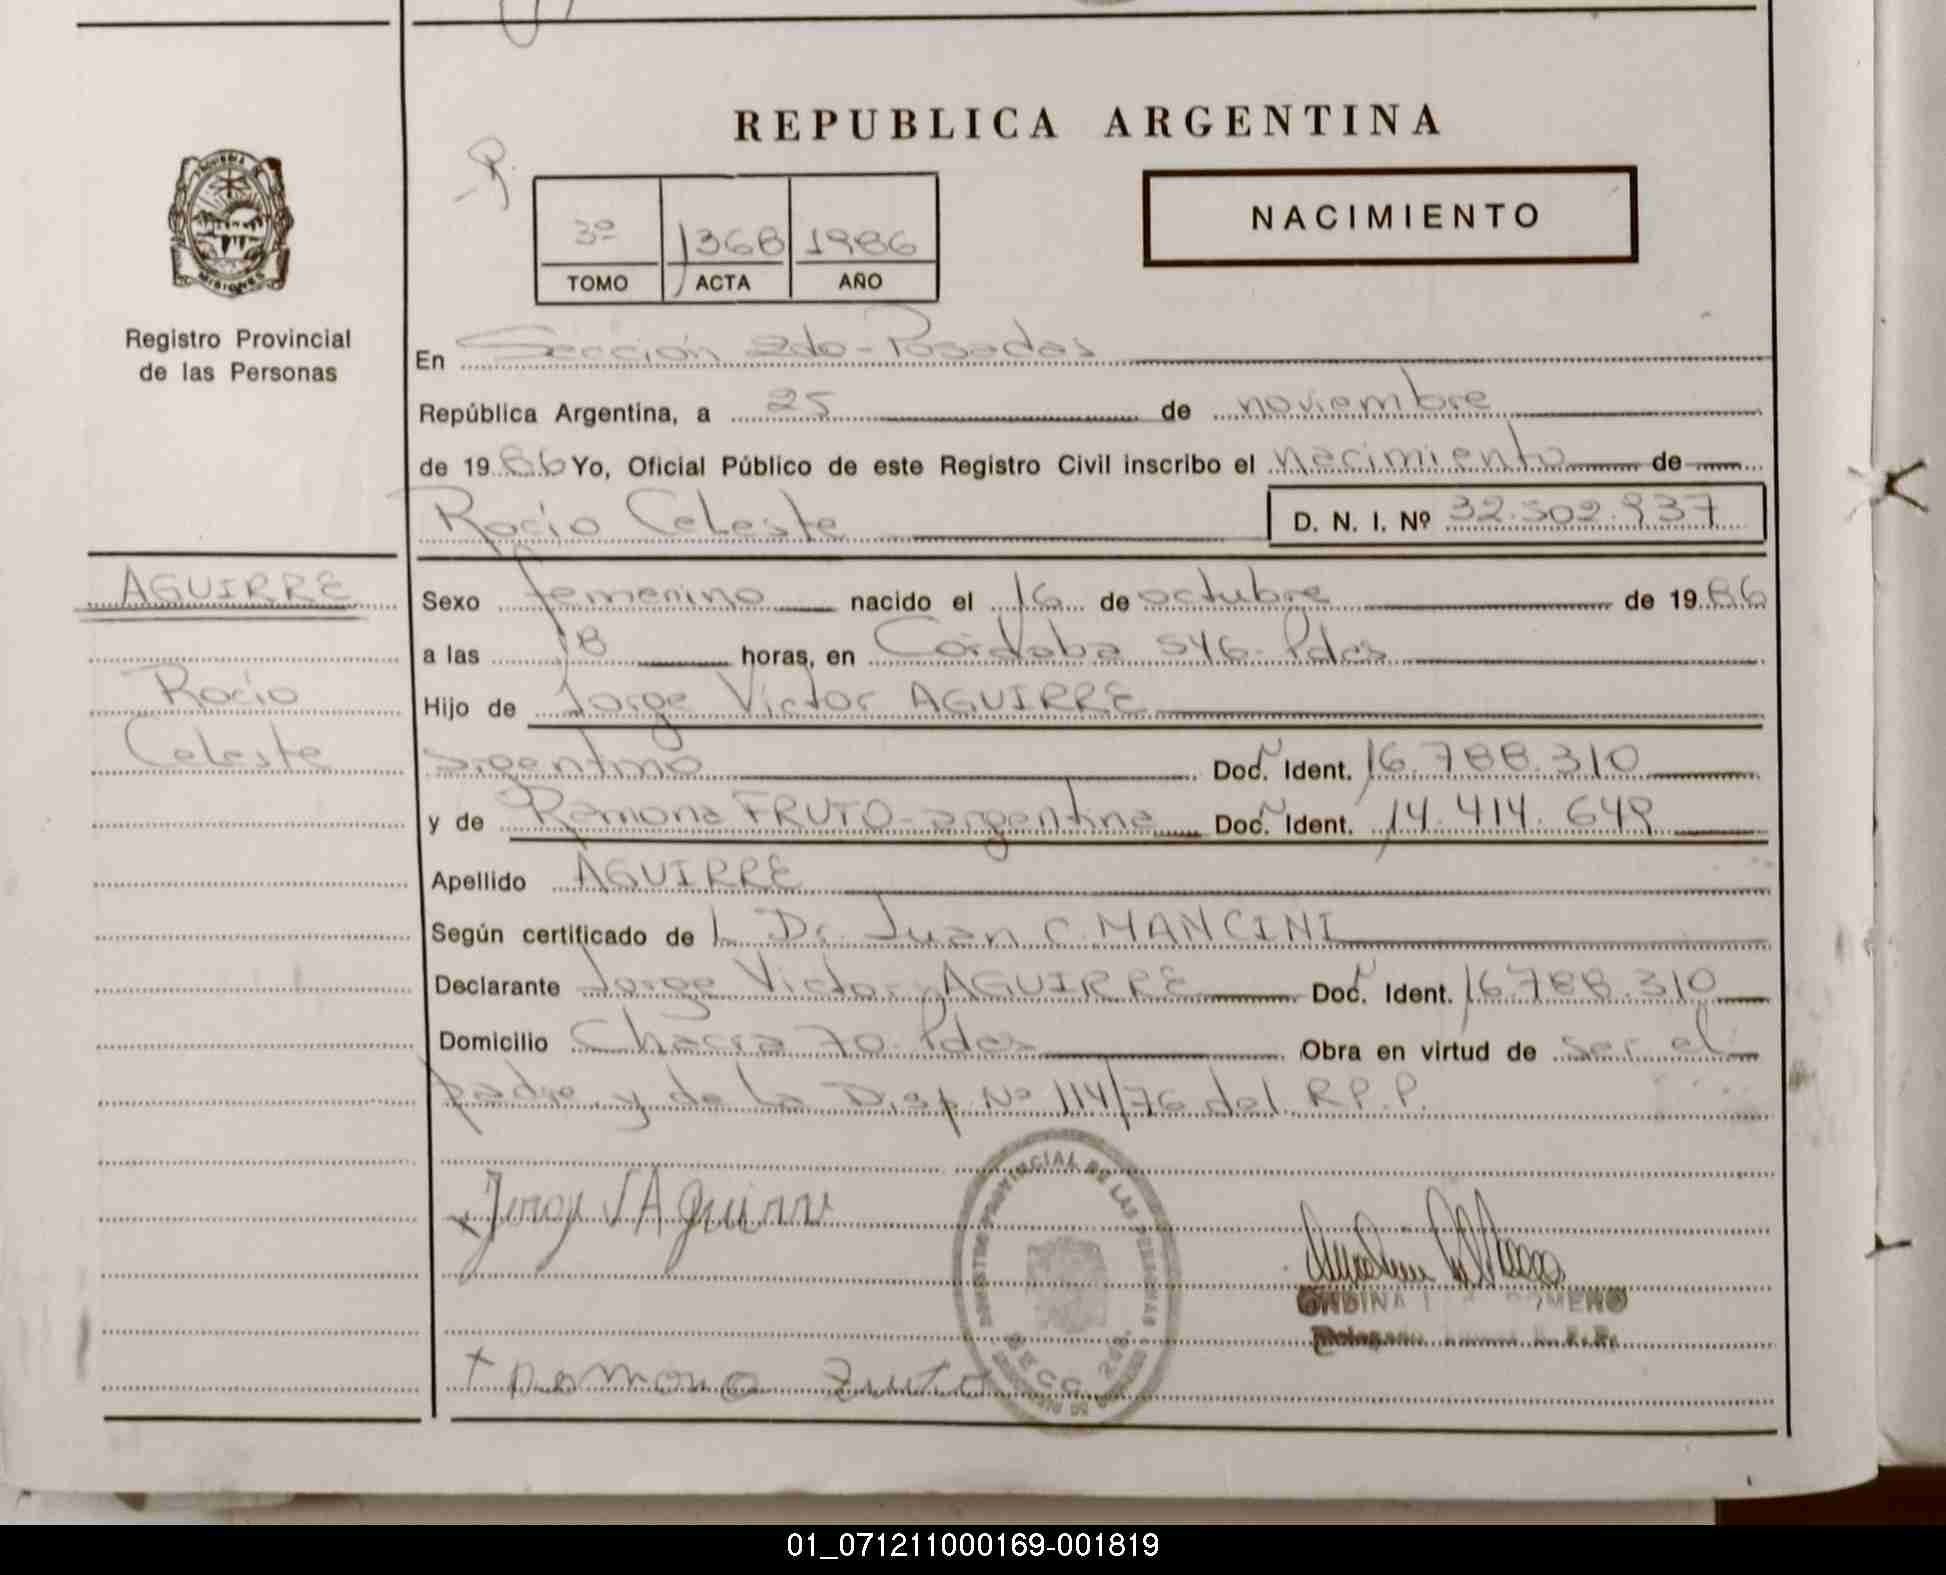 REPUBLICA ARGENTINA
NACIMIENTO
3º 1368 1986
TOMO ACTA AÑO
Registro Provincial
de las Personas
En Sección 2do - Posadas
República Argentina, a 25 de noviembre
de 19 86 Yo, Oficial Público de este Registro Civil inscribo el nacimiento de
Rocío Celeste D. N. I. Nº 32.502.937
AGUIRRE
Rocío
Celeste
Sexo femenino nacido el 16 de octubre de 19 86
a las 18 horas, en Córdoba 546 - Pdas
Hijo de Jorge Victor AGUIRRE
argentino Doc. Ident. 16.788.310
y de Ramona FRUTO - argentina Doc. Ident. 14.414.649
Apellido AGUIRRE
Según certificado de L Dr. Juan C. MANCINI
Declarante Jorge Victor AGUIRRE Doc. Ident. 16.788.310
Domicilio Chacra 70 - Pdas Obra en virtud de ser el
padre y de la Disp. Nº 114/76 del R.P.P.
REGISTRO PROVINCIAL DE LAS PERSONAS
SECC. 2da
ONDINA ROMERO
Delegado
01_071211000169-001819